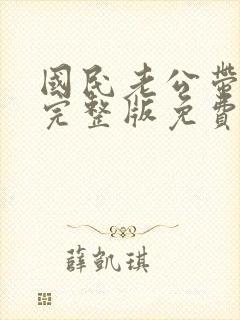 國民老公帶
完整版免費
薛凱琪